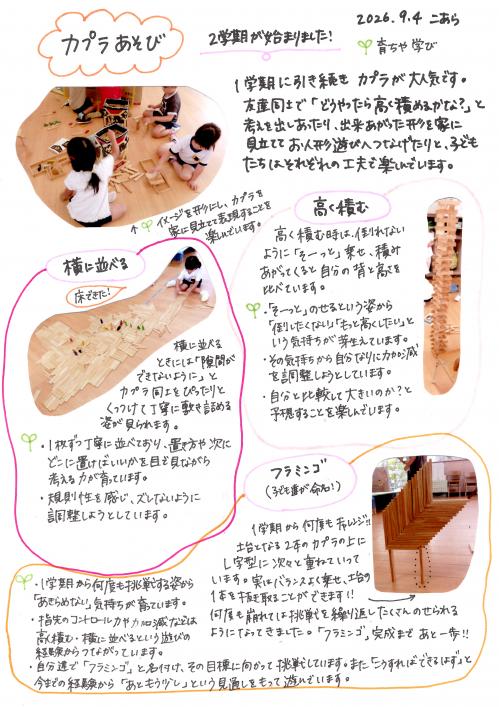 2026.9.4 こあら
カプラあそび
2学期が始まりました!
育ちや学び
1学期に引き続き カプラが大人気です。
友達同士で「どうやったら高く積めるかな?」と
考えを出しあったり、出来あがった形を家に
見立てて お人形遊びへつなげたりと、子ども
たちはそれぞれの工夫で楽しんでいます。
↑イメージを形にし、カプラを
家に見立てて表現することを
楽しんでいます。
高く積む
高く積む時は、倒れない
ように「そーっと」乗せ、積み
あがってくると自分の背と高さを
比べています。
・「そーっと」のせるという姿から
「倒したくない」「もっと高くしたい」と
いう気持ちが芽生えています。
・その気持ちから自分なりに力加減
を調整しようとしています。
・自分と比較して大きいのか?と
予想することを楽しんでいます。
横に並べる
床できた!
横に並べる
ときには「隙間が
できないように」と
カプラ同士をぴったりと
くっつけて丁寧に敷き詰める
姿が見られます。
・1枚ずつ丁寧に並べており、置き方や次に
どこに置けばいいかを目で見ながら
考える力が育っています。
・規則性を感じ、ズレないように
調整しようとしています。
フラミンゴ
(子ども達が命名!)
1学期から何度もチャレンジ!!
土台となる2本のカプラの上に
L字型に次々と重ねていって
います。実はバランスよく乗せ、土台の
1本を抜き取ることができます!!
何度も崩れては挑戦を繰り返したくさんのせられる
ようになってきました。「フラミンゴ」完成まで あと一歩!!
・1学期から何度も挑戦する姿から
「あきらめない」気持ちが育っています。
・指先のコントロール力や力加減などは
高く積む・横に並べるという遊びの
経験からつながっています。
・自分達で「フラミンゴ」と名付け、その目標に向かって挑戦しています。また「こうすればできるはず」と
今までの経験から「あともう少し」という見通しをもって遊んでいます。